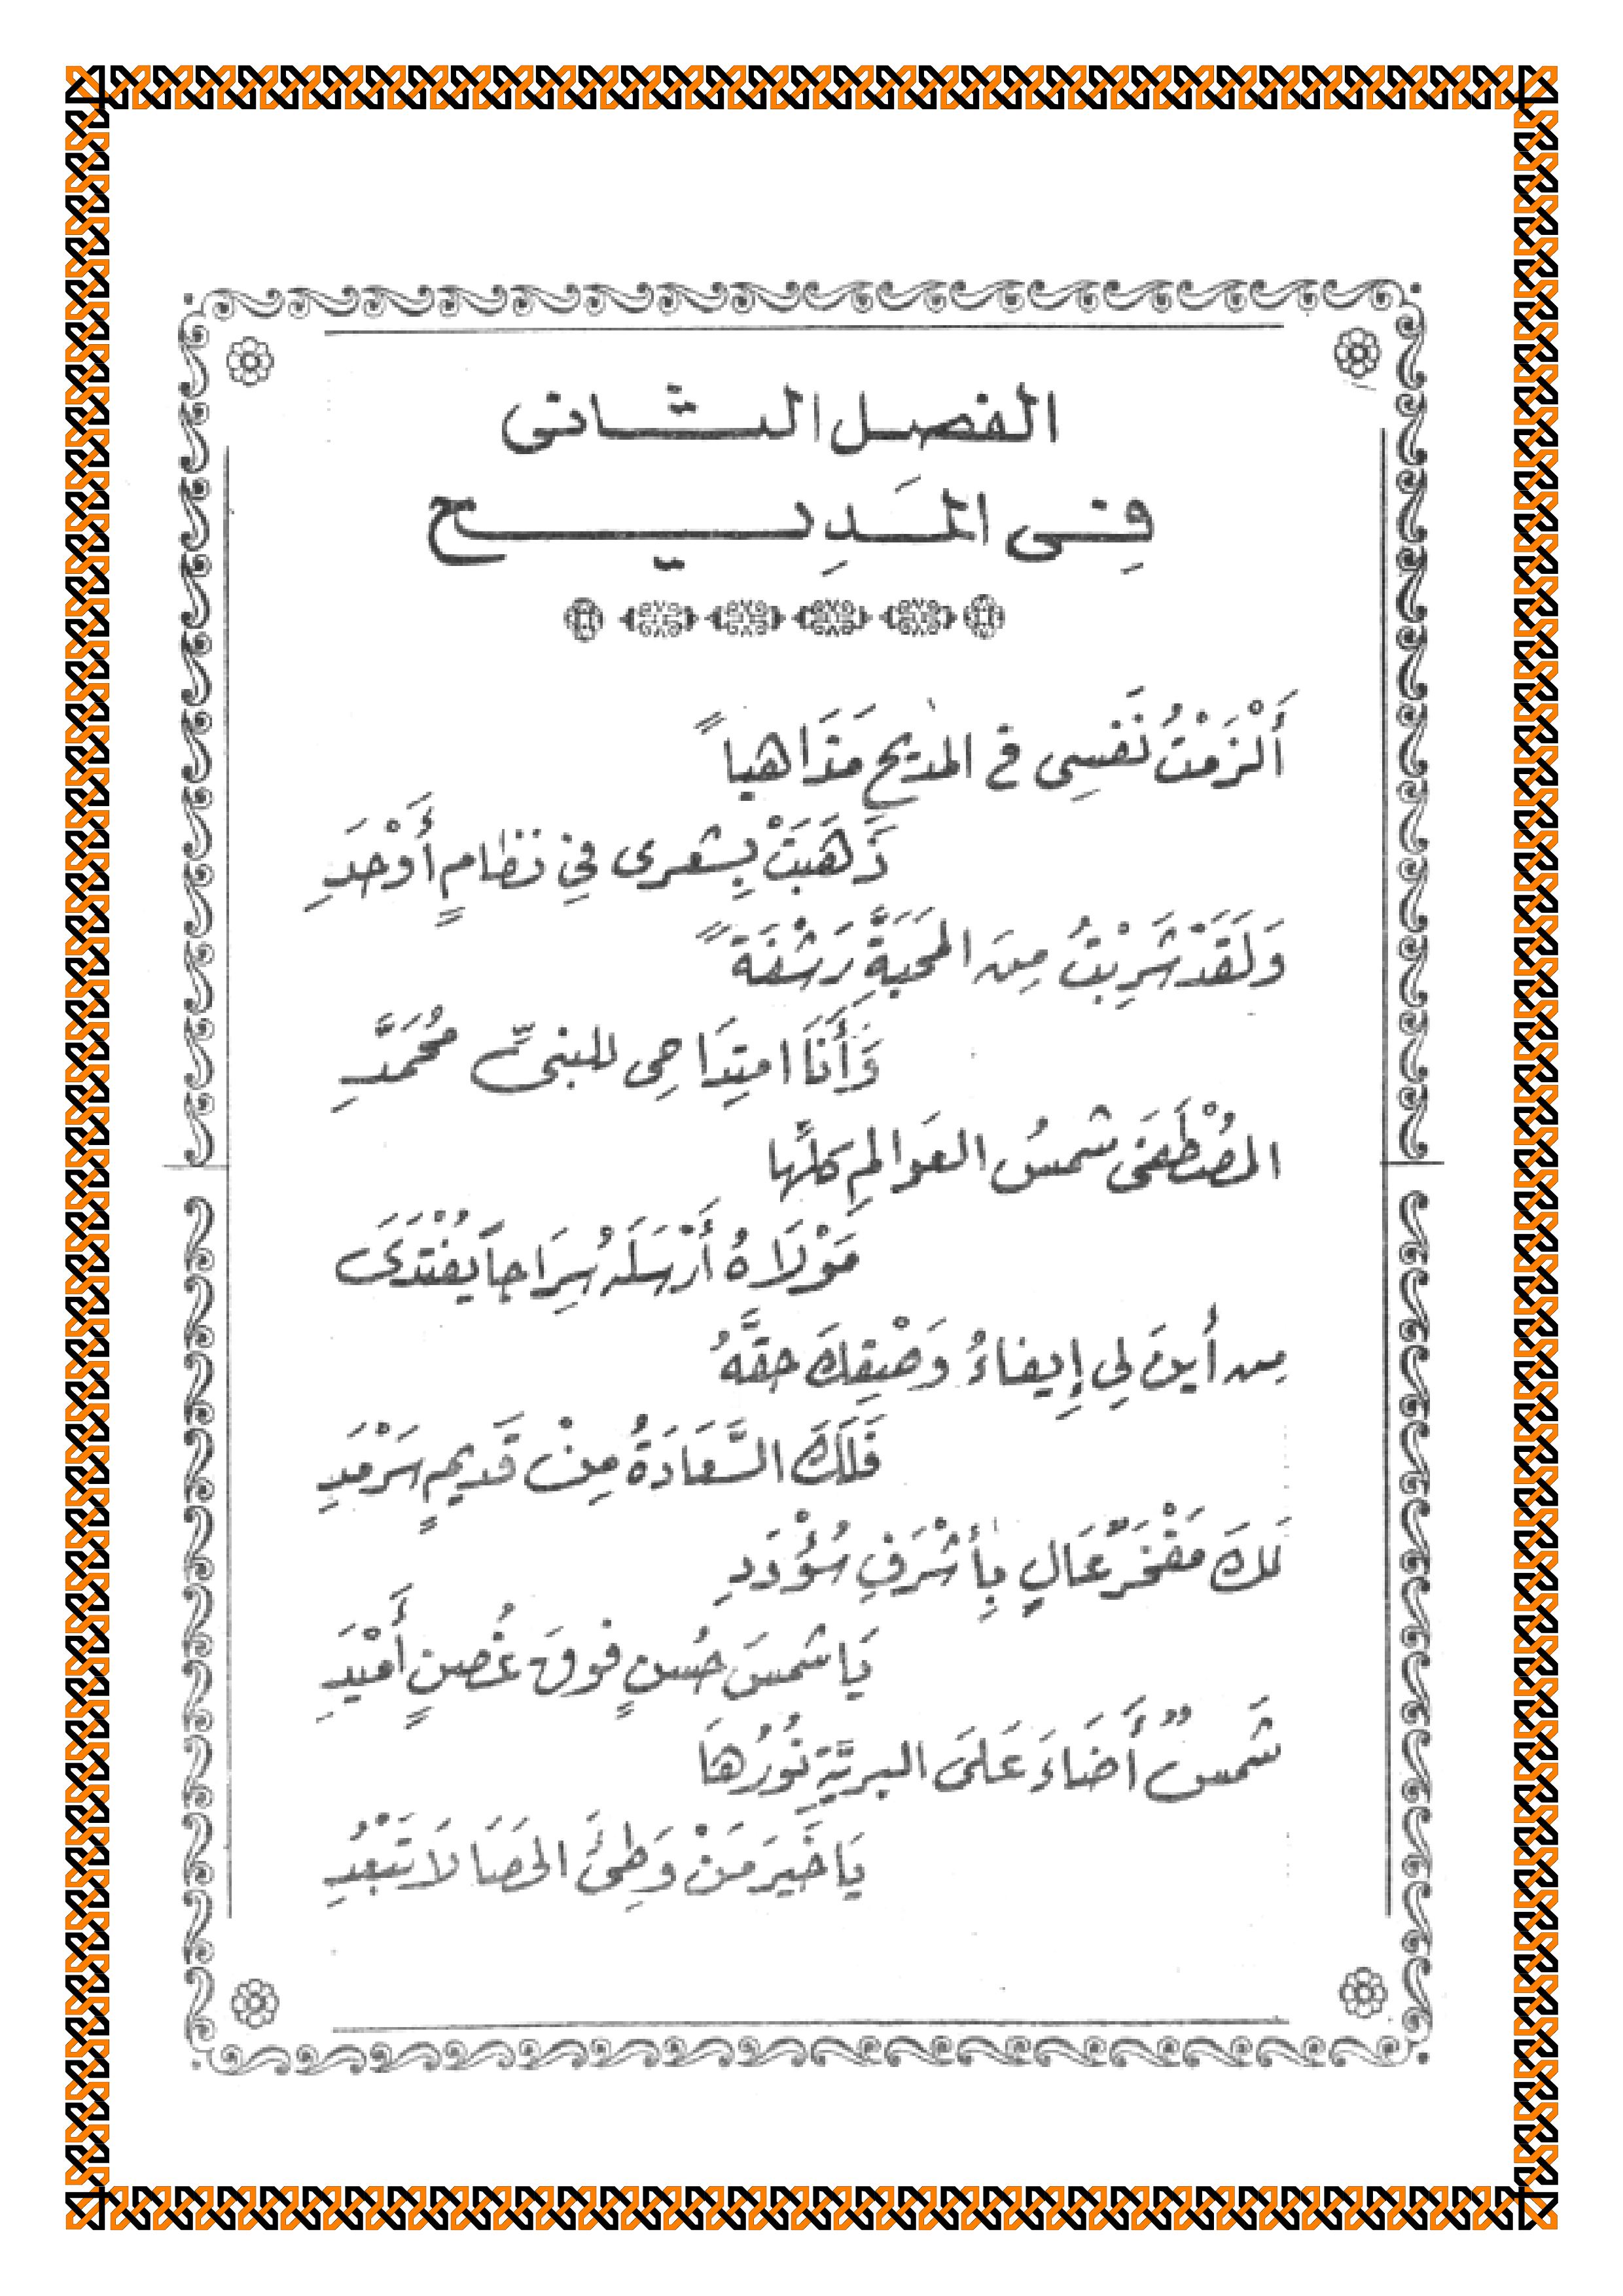 الفصل الثانى
فِى المَدِيح
أَلْزَمْتُ نَفسِى فى المديحِ مَذَاهباً
ذَهَبَتْ بِشعرى فِى نظامٍ أَوْحَدِ
وَلَقَدْ شَرِبْتُ مِنَ المحَبَّةِ رَشْفَةً
وَأَنَا امتِدَاحِى للنبىِّ مُحَمَّدِ
المصْطَفَى شمسُ العَوالمِ كلِّها
مَوْلَاهُ أَرْسَلَهُ سِرَاجاً يُفْتَدَى
مِن أَينَ لِى إِيفاءُ وَصْفِكَ حقَّهُ
فَلَكَ السَّعَادَةُ مِنْ قَديمٍ سَرْمَدِ
لَكَ مَفْخَرٌ عَالٍ بِأَشْرَفِ سُؤْدَدِ
يَا شمسَ حُسنٍ فوقَ غُصنٍ أَمْيَدِ
شَمسٌ أَضَاءَ عَلَى البريَّةِ نُورُهَا
يَا خَيرَ مَنْ وَطِئَ الحَصَا لَا تَبْعُدِ